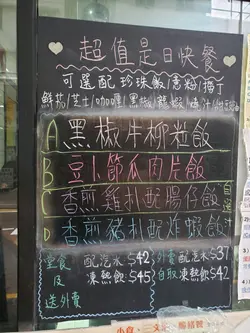 超值是日快餐
可選配珍珠飯/意粉/薯丁
鮮茄/芝士/咖喱/黑椒/龍蝦/燒汁/
A 黑椒牛柳粒飯
B 豆卜節瓜肉片飯
C 香煎雞扒配腸仔飯
D 香煎豬扒配炸蝦飯
自選汁
堂食及送外賣
配汽水 $42
凍熱飲 $45
外賣自取
配汽水 $37
凍熱飲 $42